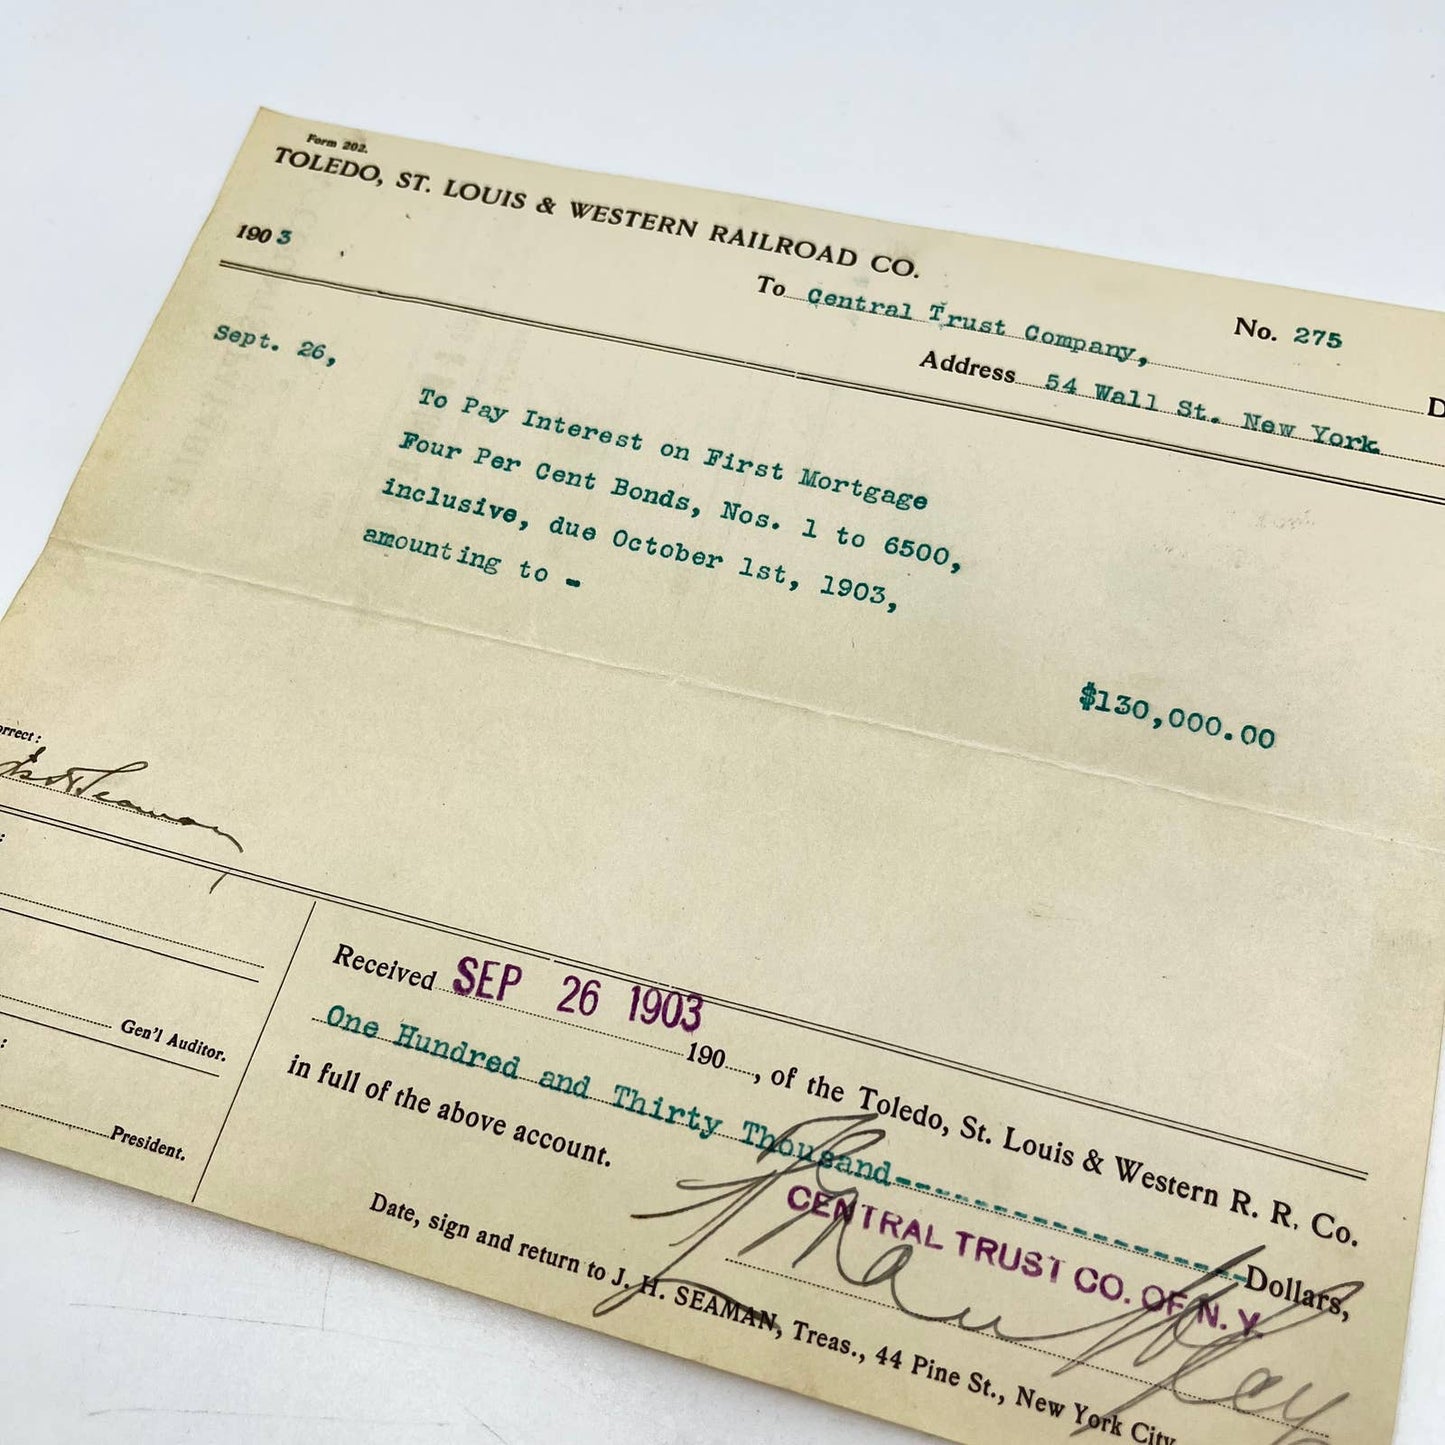 Form 202.
TOLEDO, ST. LOUIS & WESTERN RAILROAD CO.
1903
To Central Trust Company,
No. 275
Address 54 Wall St. New York.
D
Sept. 26,
To Pay Interest on First Mortgage
Four Per Cent Bonds, Nos. 1 to 6500,
inclusive, due October 1st, 1903,
amounting to -
$130,000.00
orrect:
Seaman
:
Gen'l Auditor.
:
President.
Received SEP 26 1903 190...., of the Toledo, St. Louis & Western R. R. Co.
One Hundred and Thirty Thousand-------------------- Dollars,
in full of the above account.
CENTRAL TRUST CO. OF N. Y.
Date, sign and return to J. H. SEAMAN, Treas., 44 Pine St., New York City